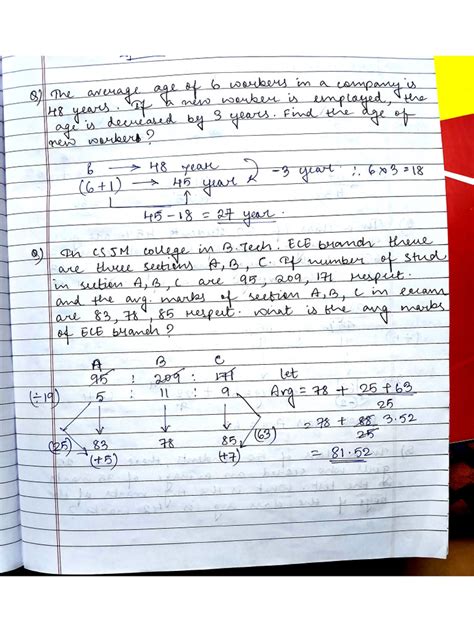 Q) The average age of 6 workers in a company is
48 years. If a new worker is employed, the
age is decreased by 3 years. Find the age of
new worker?
6 → 48 year
-3 year ∴ 6×3=18
(6+1) → 45 year
45-18 = 27 year.
Q) In CSJM college in B.Tech. ECE branch there
are three sections A, B, C. If number of stud
in section A, B, C are 95, 209, 171 respect.
and the avg. marks of section A, B, C in
are 83, 78, 85 respect. what is the avg marks
of ECE branch?
A B C
95 : 209 : 171 let
(÷19) 5 : 11 : 9 Avg = 78 + 25+63
25
= 78 + 88 3.52
25
(25) 83 78 85 (63)
(+5) (+7) = 81.52